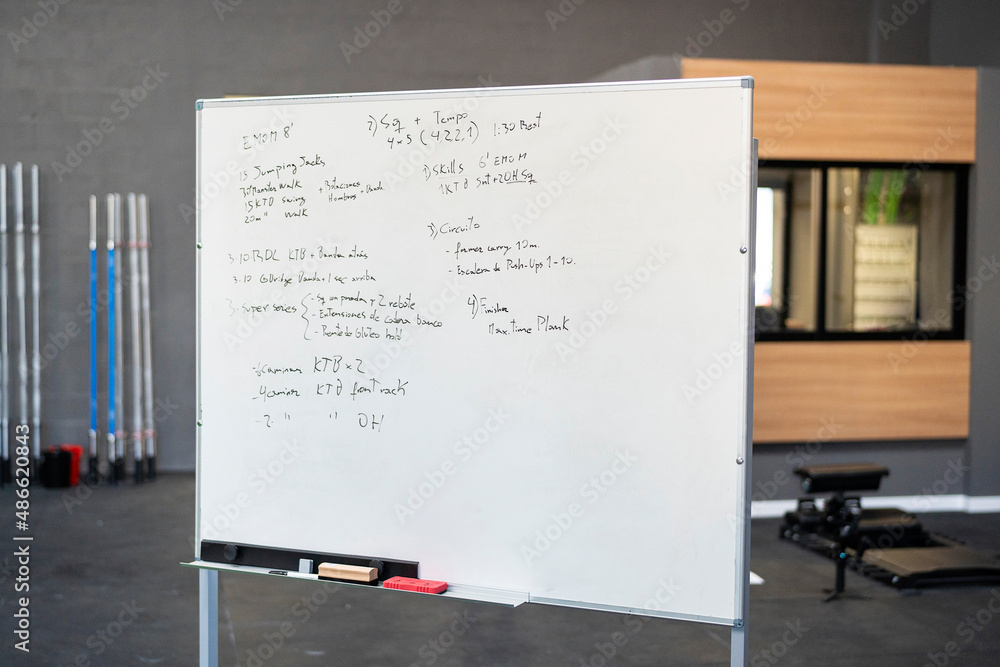 EMOM 8'
15 Jumping Jacks
Monster Walk + Rotaciones
15 KTB swing Hombros + Banda
20m " Walk
3·10 RDL KTB + Banda atrás
3·10 G Bridge Banda + 1 seg arriba
3· Super series
- Sq en parada y 2 rebote
- Extensiones de cadera banco
- Puente de Glúteo hold
KTB x 2
- 4 KTB front rack
- 2 " " OH
2) Sq + Tempo
4x5 (4,2,2,1) 1:30 Rest
1) Skills 6' EMOM
1 KTB Snt + 2 OH Sq
3) Circuito
- farmer carry 10m.
- Escalera de Push-Ups 1-10.
4) Finisher
Max. time Plank
Adobe Stock | #486620843